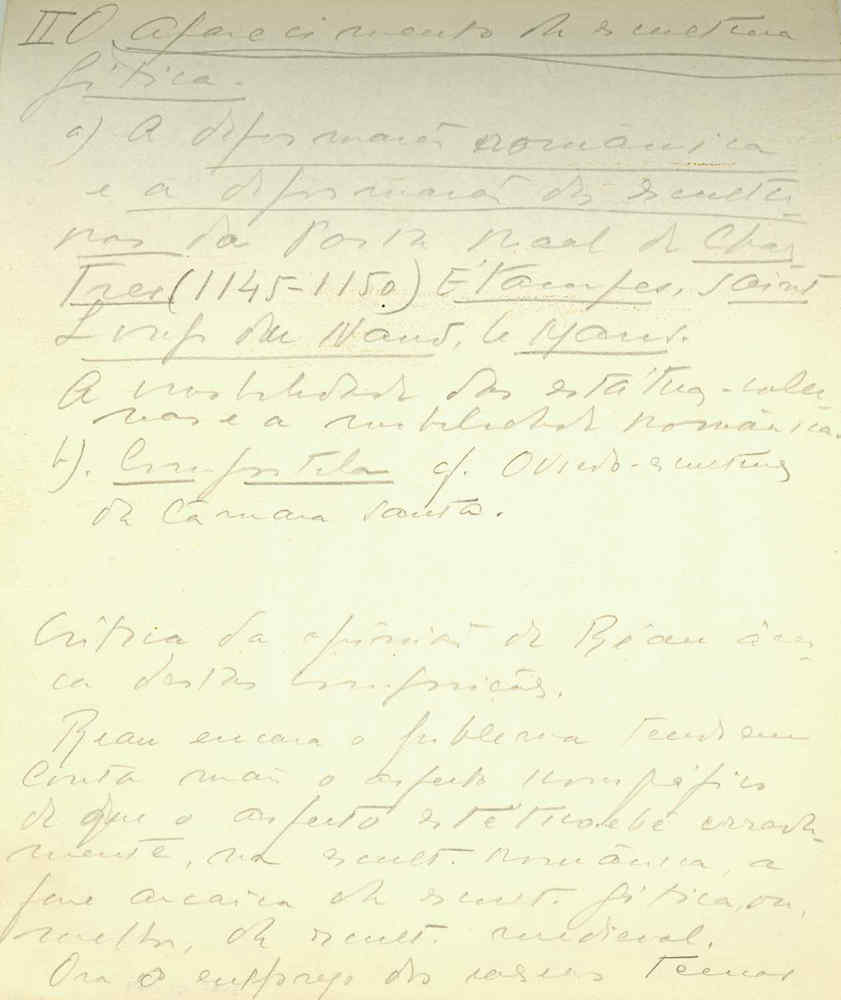 II O aparecimento da escultura
gótica.
a) A deformação românica
e a deformação das escultu-
ras da Porta Real de Char
Tres (1145-1150) Étampes, Saint
Loup de Naud, le Mans.
A mobilidade das estátuas-colu
nas e a mobilidade românica.
b). Compostela cf. Oviedo - escultura
da Câmara Santa.
Crítica da opinião de Réau àcer-
ca destas composições.
Réau encara o problema tendo em
conta mais o aspecto iconográfico
do que o aspecto estético e vê errada-
mente, na escult. românica, a
fase arcaica da escult. gótica, ou,
melhor, da escult. medieval.
Ora o emprego dos mesmos temas